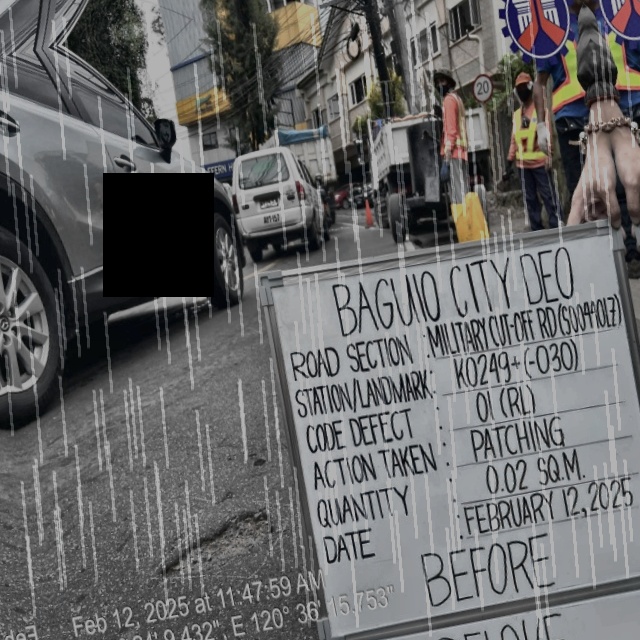 20
BAGUIO CITY DEO
ROAD SECTION : MILITARY CUT-OFF RD (S00449017)
STATION/LANDMARK : K0249+(-030)
CODE DEFECT : 01 (RL)
ACTION TAKEN : PATCHING
QUANTITY : 0.02 SQ.M.
DATE : FEBRUARY 12, 2025
BEFORE
Feb 12, 2025 at 11:47:59 AM
9.432", E 120° 36' 15.753"